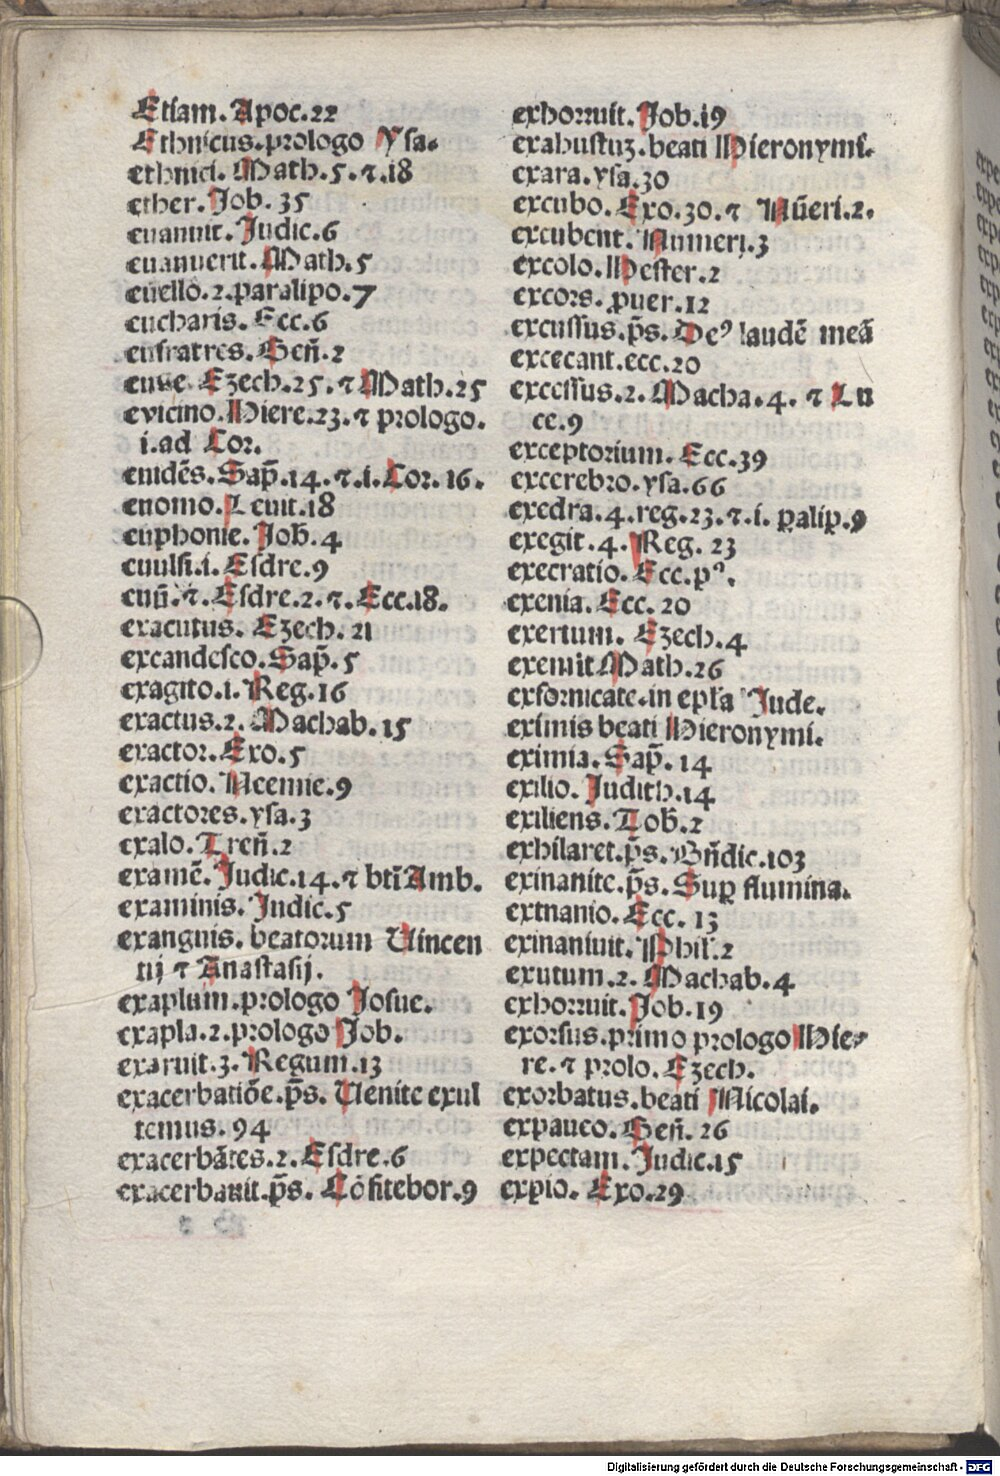 Etiam. Apoc.22
Ethnicus.prologo Ysa.
ethnici. Math.5.⁊.18
ether. Job. 35
euanuit. Judic.6
euanuerit. Math.5
euello.2.paralipo.7
eucharis. Ecc.6
eufratres. Geñ.2
euge Ezech.25.⁊ Math.25
evicino. Hiere.23.⁊ prologo.
i.ad Cor.
euidēs. Sap̄.14.⁊.i.Cor. 16.
enomo. Leuit.18
euphonie. Job.4
euulsi.i. Esdre.9
eun̄.⁊. Esdre.2.⁊. Ecc.18.
exacutus. Ezech. 21
excandesco. Sap̄. 5
exagito.i. Reg.16
exactus.2. Machab. 15
exactor. Exo.5
exactio. Neemie.9
exactores.ysa.3
exalo. Treñ.2
examē. Judic.14.⁊ btī Amb.
examinis. Judic.5
exanguis. beatorum Uincen
tij ⁊ Anastasij.
exaplum.prologo Josue.
exapla.2.prologo Job.
exaruit.3. Regum.13
exacerbatiōe.p̄s. Uenite exul
temus. 94
exacerbātes.2. Esdre.6
exacerbauit.p̄s. Cōfitebor.9
exhorruit. Job.19
exahustuʒ.beati Hieronymi.
exara.ysa.30
excubo. Exo.30.⁊ Nūeri.2.
excubent. Numeri.3
excolo. Hester.2
excors. ꝓuer.12
excussus.p̄s. Deꝰ laudē meā
excecant.ecc.20
excessus.2. Macha.4. ⁊ Lu
ce.9
exceptorium. Ecc.39
excerebro.ysa.66
exedra.4.reg.23.⁊.i. ꝑalip̄.9
exegit.4. Reg. 23
execratio. Ecc.pº.
exenia. Ecc. 20
exertum. Ezech.4
exemit Math.26
exfornicate.in ep̄la Jude.
eximis beati Hieronymi.
eximia. Sap̄. 14
exilio. Judith.14
exiliens. Tob.2
exhilaret.p̄s. Bn̄dic.103
exinanite.p̄s. Suꝑ flumina.
extnanio. Ecc. 13
exinaniuit. Phil̄.2
exutum.2. Machab.4
exhorruit. Job.19
exorsus.primo prologo Hie⸗
re.⁊ prolo. Ezech.
exorbatus.beati Nicolai.
expaueo. Geñ. 26
expectam. Judic.15
expio. Exo.29
Digitalisierung gefördert durch die Deutsche Forschungsgemeinschaft - DFG